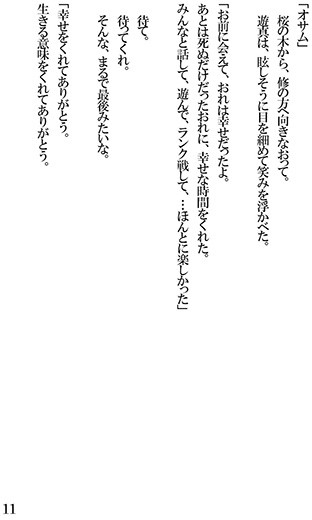 「オサム」
桜の木から、修の方へ向きなおって。
遊真は、眩しそうに目を細めて笑みを浮かべた。
「お前に会えて、おれは幸せだったよ。
あとは死ぬだけだったおれに、幸せな時間をくれた。
みんなと話して、遊んで、ランク戦して、…ほんとに楽しかった」
待て。
待ってくれ。
そんな、まるで最後みたいな。
「幸せをくれてありがとう。
生きる意味をくれてありがとう。
11